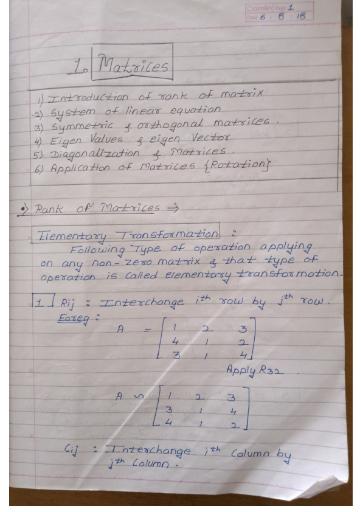 1. Matrices
1) Introduction of rank of matrix
2) System of linear equation
3) Symmetric & orthogonal matrices.
4) Eigen Values & eigen Vector
5) Diagonalization & Matrices.
6) Application of Matrices {Rotation}
Rank of Matrices ⇒
Elementary Transformation :
Following Type of operation applying
on any non-zero matrix & that type of
operation is called elementary transformation.
1. Rij : Interchange ith row by jth row.
Foreg :
A = [ 1 2 3
4 1 2
3 1 4 ]
Apply R32
A ~ [ 1 2 3
3 1 4
4 1 2 ]
Cij : Interchange ith column by
jth column.